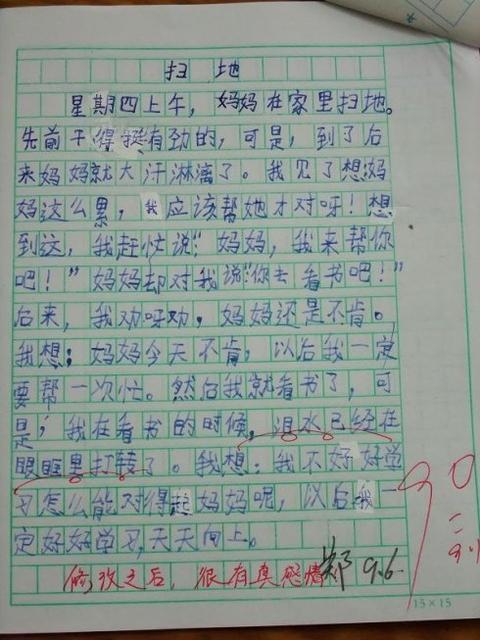 扫 地
星期四上午，妈妈在家里扫地。
先前干得挺有劲的，可是，到了后
来妈妈就大汗淋漓了。我见了想妈
妈这么累，我应该帮她才对呀！想
到这，我赶忙说："妈妈，我来帮你
吧！"妈妈却对我说"你去看书吧！"
后来，我劝呀劝，妈妈还是不肯。
我想：妈妈今天不肯，以后我一定
要帮一次忙。然后我就看书了，可
是，我在看书的时候，泪水已经在
眼眶里打转了。我想：我不好好学
习怎么能对得起妈妈呢，以后我一
定好好学习，天天向上。
修改之后，很有真感情 郑 9.6.
90
9.
15×15